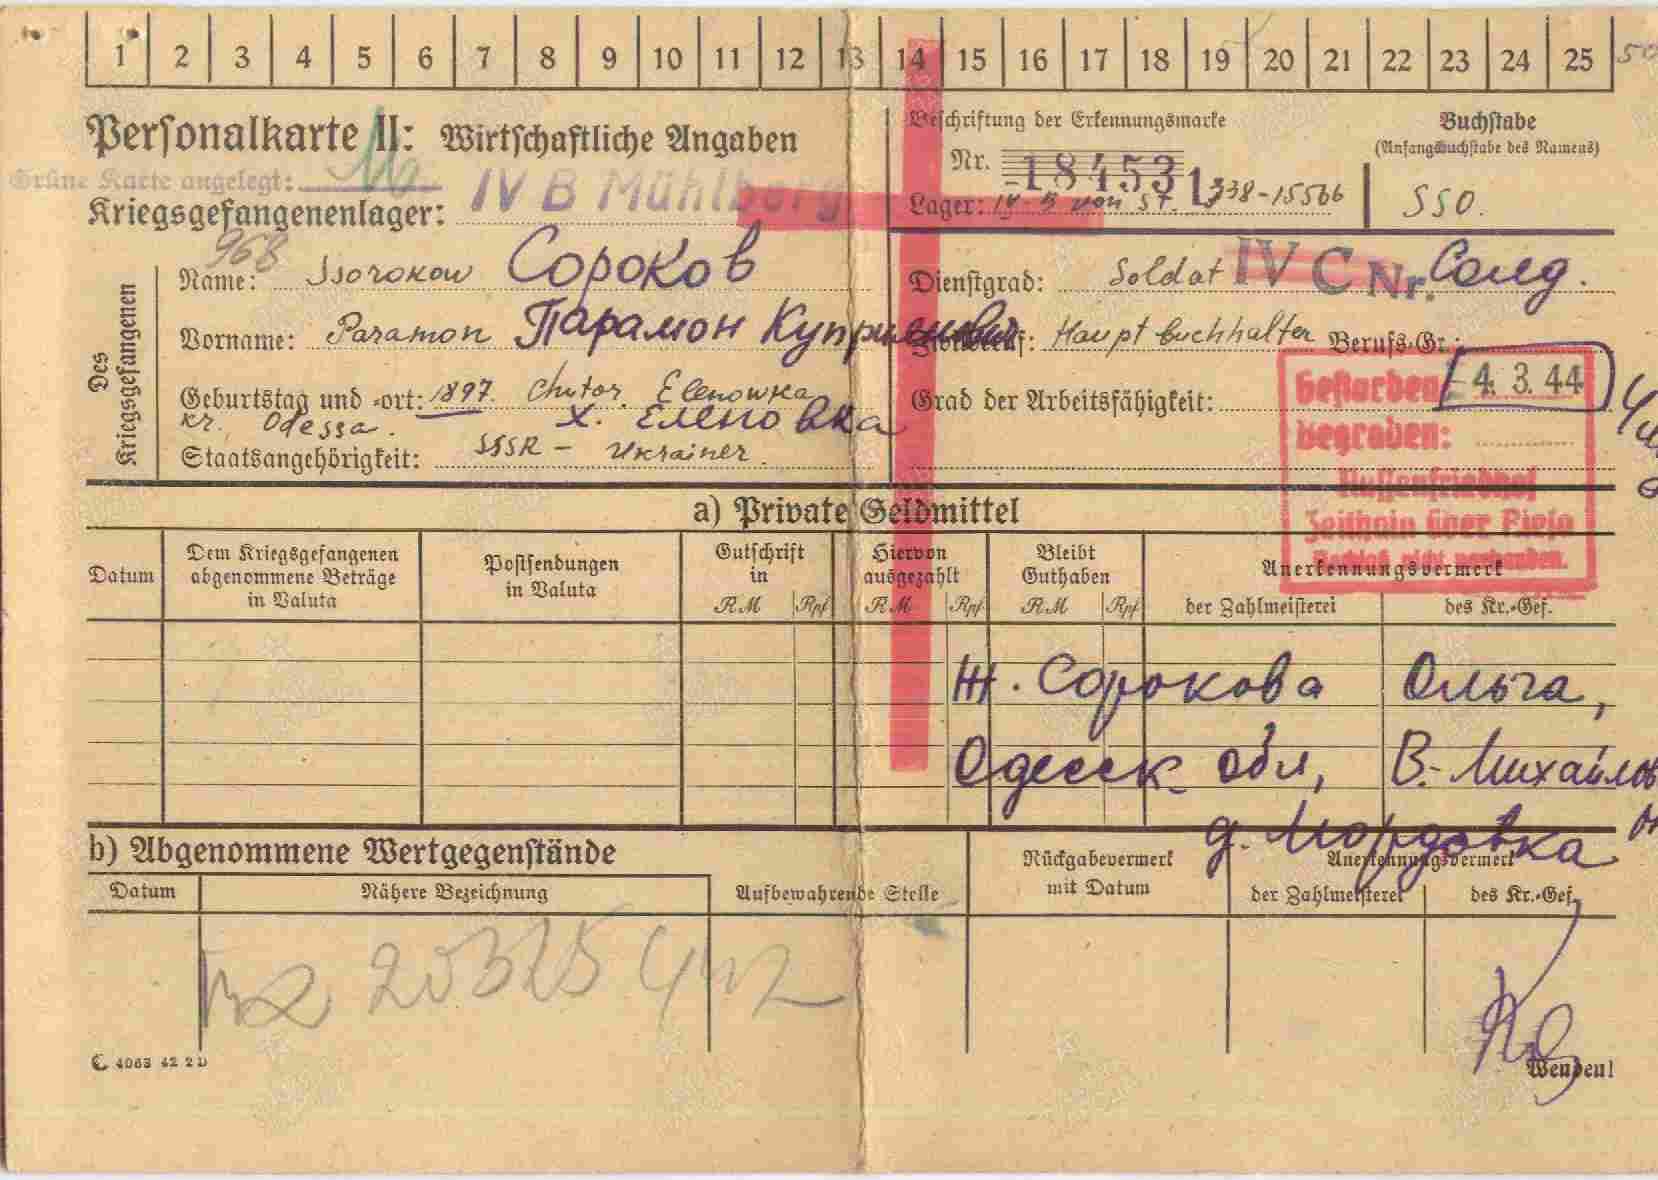 1 2 3 4 5 6 7 8 9 10 11 12 13 14 15 16 17 18 19 20 21 22 23 24 25
Personalkarte II: Wirtschaftliche Angaben
Beschriftung der Erkennungsmarke
Buchstabe
(Anfangsbuchstabe des Namens)
Grüne Karte angelegt:
Nr. 18453
Kriegsgefangenenlager: IV B Mühlberg
Lager: IV B von St. 338-15566
SSO.
968
Des Kriegsgefangenen
Name: Ssorokow Сороков
Dienstgrad: Soldat IV C Nr. Солд.
Vorname: Paramon Парамон Куприянович
Zivilberuf: Hauptbuchhalter Berufs-Gr.:
Geburtstag und -ort: 1897. Chutor. Elenowka
kr. Odessa. х. Еленовка
Grad der Arbeitsfähigkeit:
Staatsangehörigkeit: SSSR - Ukrainer.
Gestorben: 4. 3. 44
begraben:
Russenfriedhof
Zeithain über Riesa
Nachlaß nicht vorhanden.
a) Private Geldmittel
Datum
Dem Kriegsgefangenen abgenommene Beträge in Valuta
Postsendungen in Valuta
Gutschrift in
RM Rpf
Hiervon ausgezahlt
RM Rpf
Bleibt Guthaben
RM Rpf
Anerkennungsvermerk
der Zahlmeisterei des Kr.-Gef.
Ж. Сорокова Ольга,
Одесск обл, В.-Михайлов
д. Мордовка
b) Abgenommene Wertgegenstände
Datum
Nähere Bezeichnung
Aufbewahrende Stelle
Rückgabevermerk mit Datum
Anerkennungsvermerk
der Zahlmeisterei des Kr.-Gef.
20325
C 4063 42 2 D
Wenden!